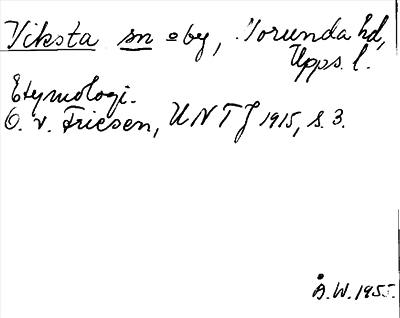 Viksta sn o by, Norunda hd,
Upps. l.
Etymologi.
O. v. Friesen, UNTJ 1915, s. 3.
Å.W. 1955.